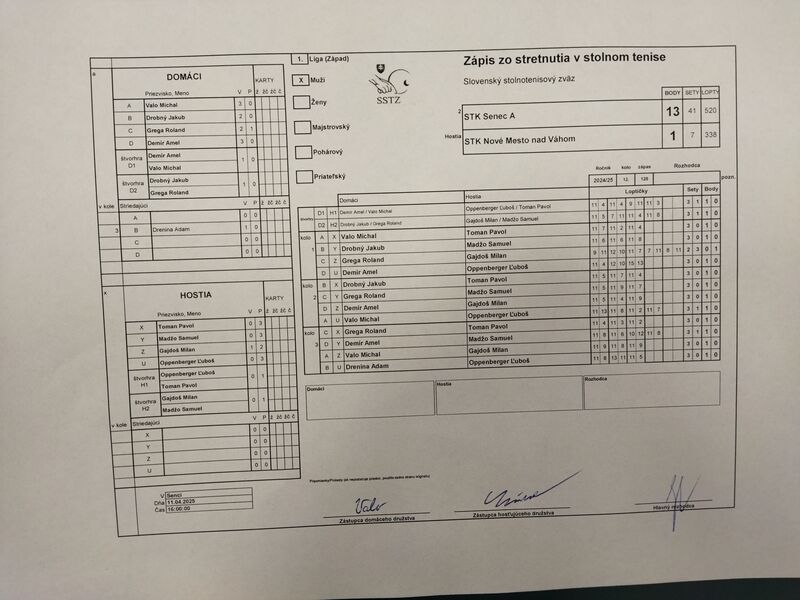 1. Liga (Západ)
X Muži
Ženy
Majstrovský
Pohárový
Priateľský
SSTZ
Zápis zo stretnutia v stolnom tenise
Slovenský stolnotenisový zväz
BODY SETY LOPTY
STK Senec A 13 41 520
Hostia STK Nové Mesto nad Váhom 1 7 338
Ročník kolo zápas Rozhodca
2024/25 12. 128
pozn.
DOMÁCI KARTY
Priezvisko, Meno V P ž žč žč č
A Valo Michal 3 0
B Drobný Jakub 2 0
C Grega Roland 2 1
D Demir Amel 3 0
štvorhra D1 Demir Amel 1 0
Valo Michal
štvorhra D2 Drobný Jakub 1 0
Grega Roland
v kole Striedajúci V P ž žč žč č
A 0 0
3 B Drenina Adam 1 0
C 0 0
D 0 0
HOSTIA KARTY
Priezvisko, Meno V P ž žč žč č
X Toman Pavol 0 3
Y Madžo Samuel 0 3
Z Gajdoš Milan 1 2
U Oppenberger Ľuboš 0 3
štvorhra H1 Oppenberger Ľuboš 0 1
Toman Pavol
štvorhra H2 Gajdoš Milan 0 1
Madžo Samuel
v kole Striedajúci V P ž žč žč č
X 0 0
Y 0 0
Z 0 0
U 0 0
Domáci Hostia Loptičky Sety Body
D1 H1 Demir Amel / Valo Michal Oppenberger Ľuboš / Toman Pavol 11 4 11 4 9 11 11 3 3 1 1 0
D2 H2 Drobný Jakub / Grega Roland Gajdoš Milan / Madžo Samuel 11 5 7 11 11 4 11 8 3 1 1 0
kolo A X Valo Michal Toman Pavol 11 7 11 2 11 4 3 0 1 0
1 B Y Drobný Jakub Madžo Samuel 11 6 11 6 11 8 3 0 1 0
C Z Grega Roland Gajdoš Milan 9 11 12 10 11 7 7 11 8 11 2 3 0 1
D U Demir Amel Oppenberger Ľuboš 11 4 12 10 15 13 3 0 1 0
kolo B X Drobný Jakub Toman Pavol 11 5 11 7 11 4 3 0 1 0
2 C Y Grega Roland Madžo Samuel 11 5 11 9 11 7 3 0 1 0
D Z Demir Amel Gajdoš Milan 11 5 11 4 11 9 3 0 1 0
A U Valo Michal Oppenberger Ľuboš 11 13 11 8 11 2 11 7 3 1 1 0
kolo C X Grega Roland Toman Pavol 11 4 11 3 11 2 3 0 1 0
3 D Y Demir Amel Madžo Samuel 11 8 11 6 10 12 11 8 3 1 1 0
A Z Valo Michal Gajdoš Milan 11 9 11 8 11 9 3 0 1 0
B U Drenina Adam Oppenberger Ľuboš 11 8 13 11 11 5 3 0 1 0
Domáci Hostia Rozhodca
V Senci
Dňa 11.04.2025
Čas 16:00:00
Valo
Zástupca domáceho družstva
Zástupca hosťujúceho družstva
Hlavný rozhodca